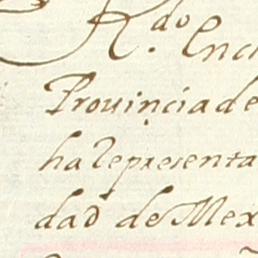 R.do Enc
Prouinciade
ha representa
dad de Mex